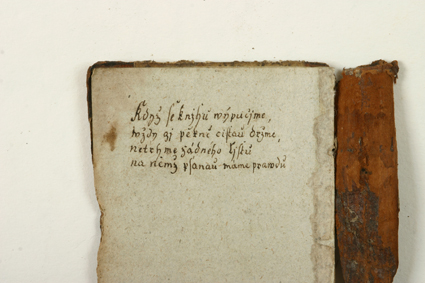 Když se knihu wypučjme,
wždy gj pěkně cžistau držme,
netrhme žádného lystu
na němž psanau máme prawdu